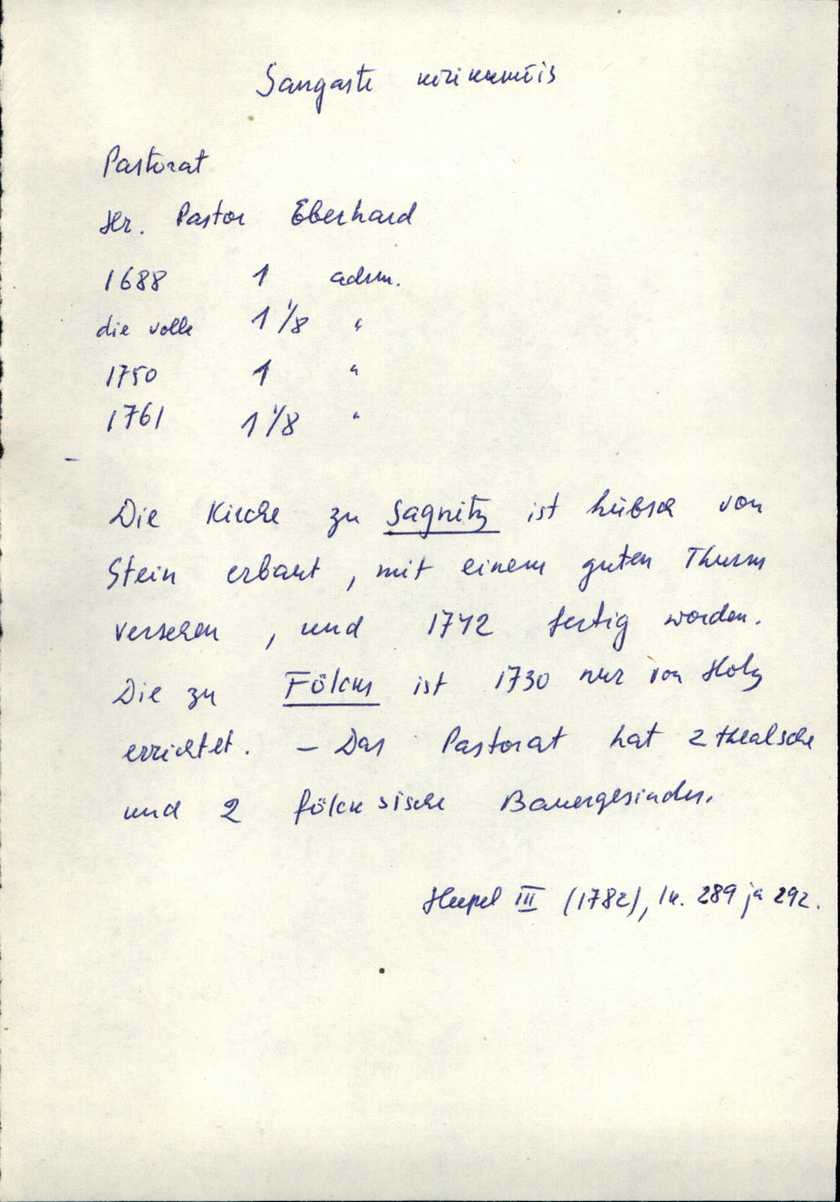 Sangaste kirikumõis
Pastorat
Hr. Pastor Eberhard
1688 1 adrm.
die volle 1 1/8 "
1750 1 "
1761 1 1/8 "
Die Kirche zu Sagnitz ist hübsch von
Stein erbaut, mit einem guten Thurm
versehen, und 1742 fertig worden.
Die zu Fölcks ist 1730 nur von Holz
errichtet. – Das Pastorat hat 2 thealsche
und 2 fölcksische Bauergesinder.
Hupel III (1782), lk. 289 ja 292.